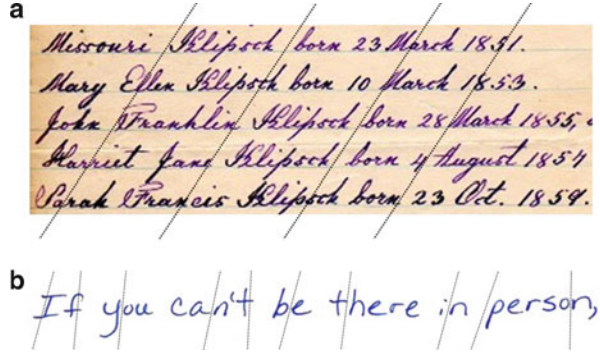 a
Missouri Klipsch born 23 March 1851.
Mary Ellen Klipsch born 10 March 1853.
John Franklin Klipsch born 28 March 1855,
Harriet Jane Klipsch born 4 August 1857
Sarah Francis Klipsch born 23 Oct. 1859.
b
If you can't be there in person,